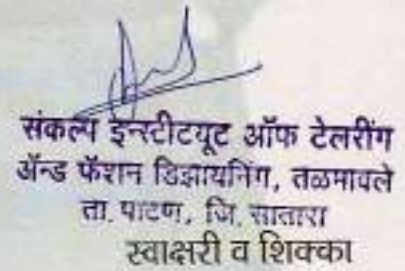 संकल्प इन्स्टीटयूट ऑफ टेलरींग
ॲन्ड फॅशन डिझायनिंग, तळमावले
ता. पाटण, जि. सातारा
स्वाक्षरी व शिक्का